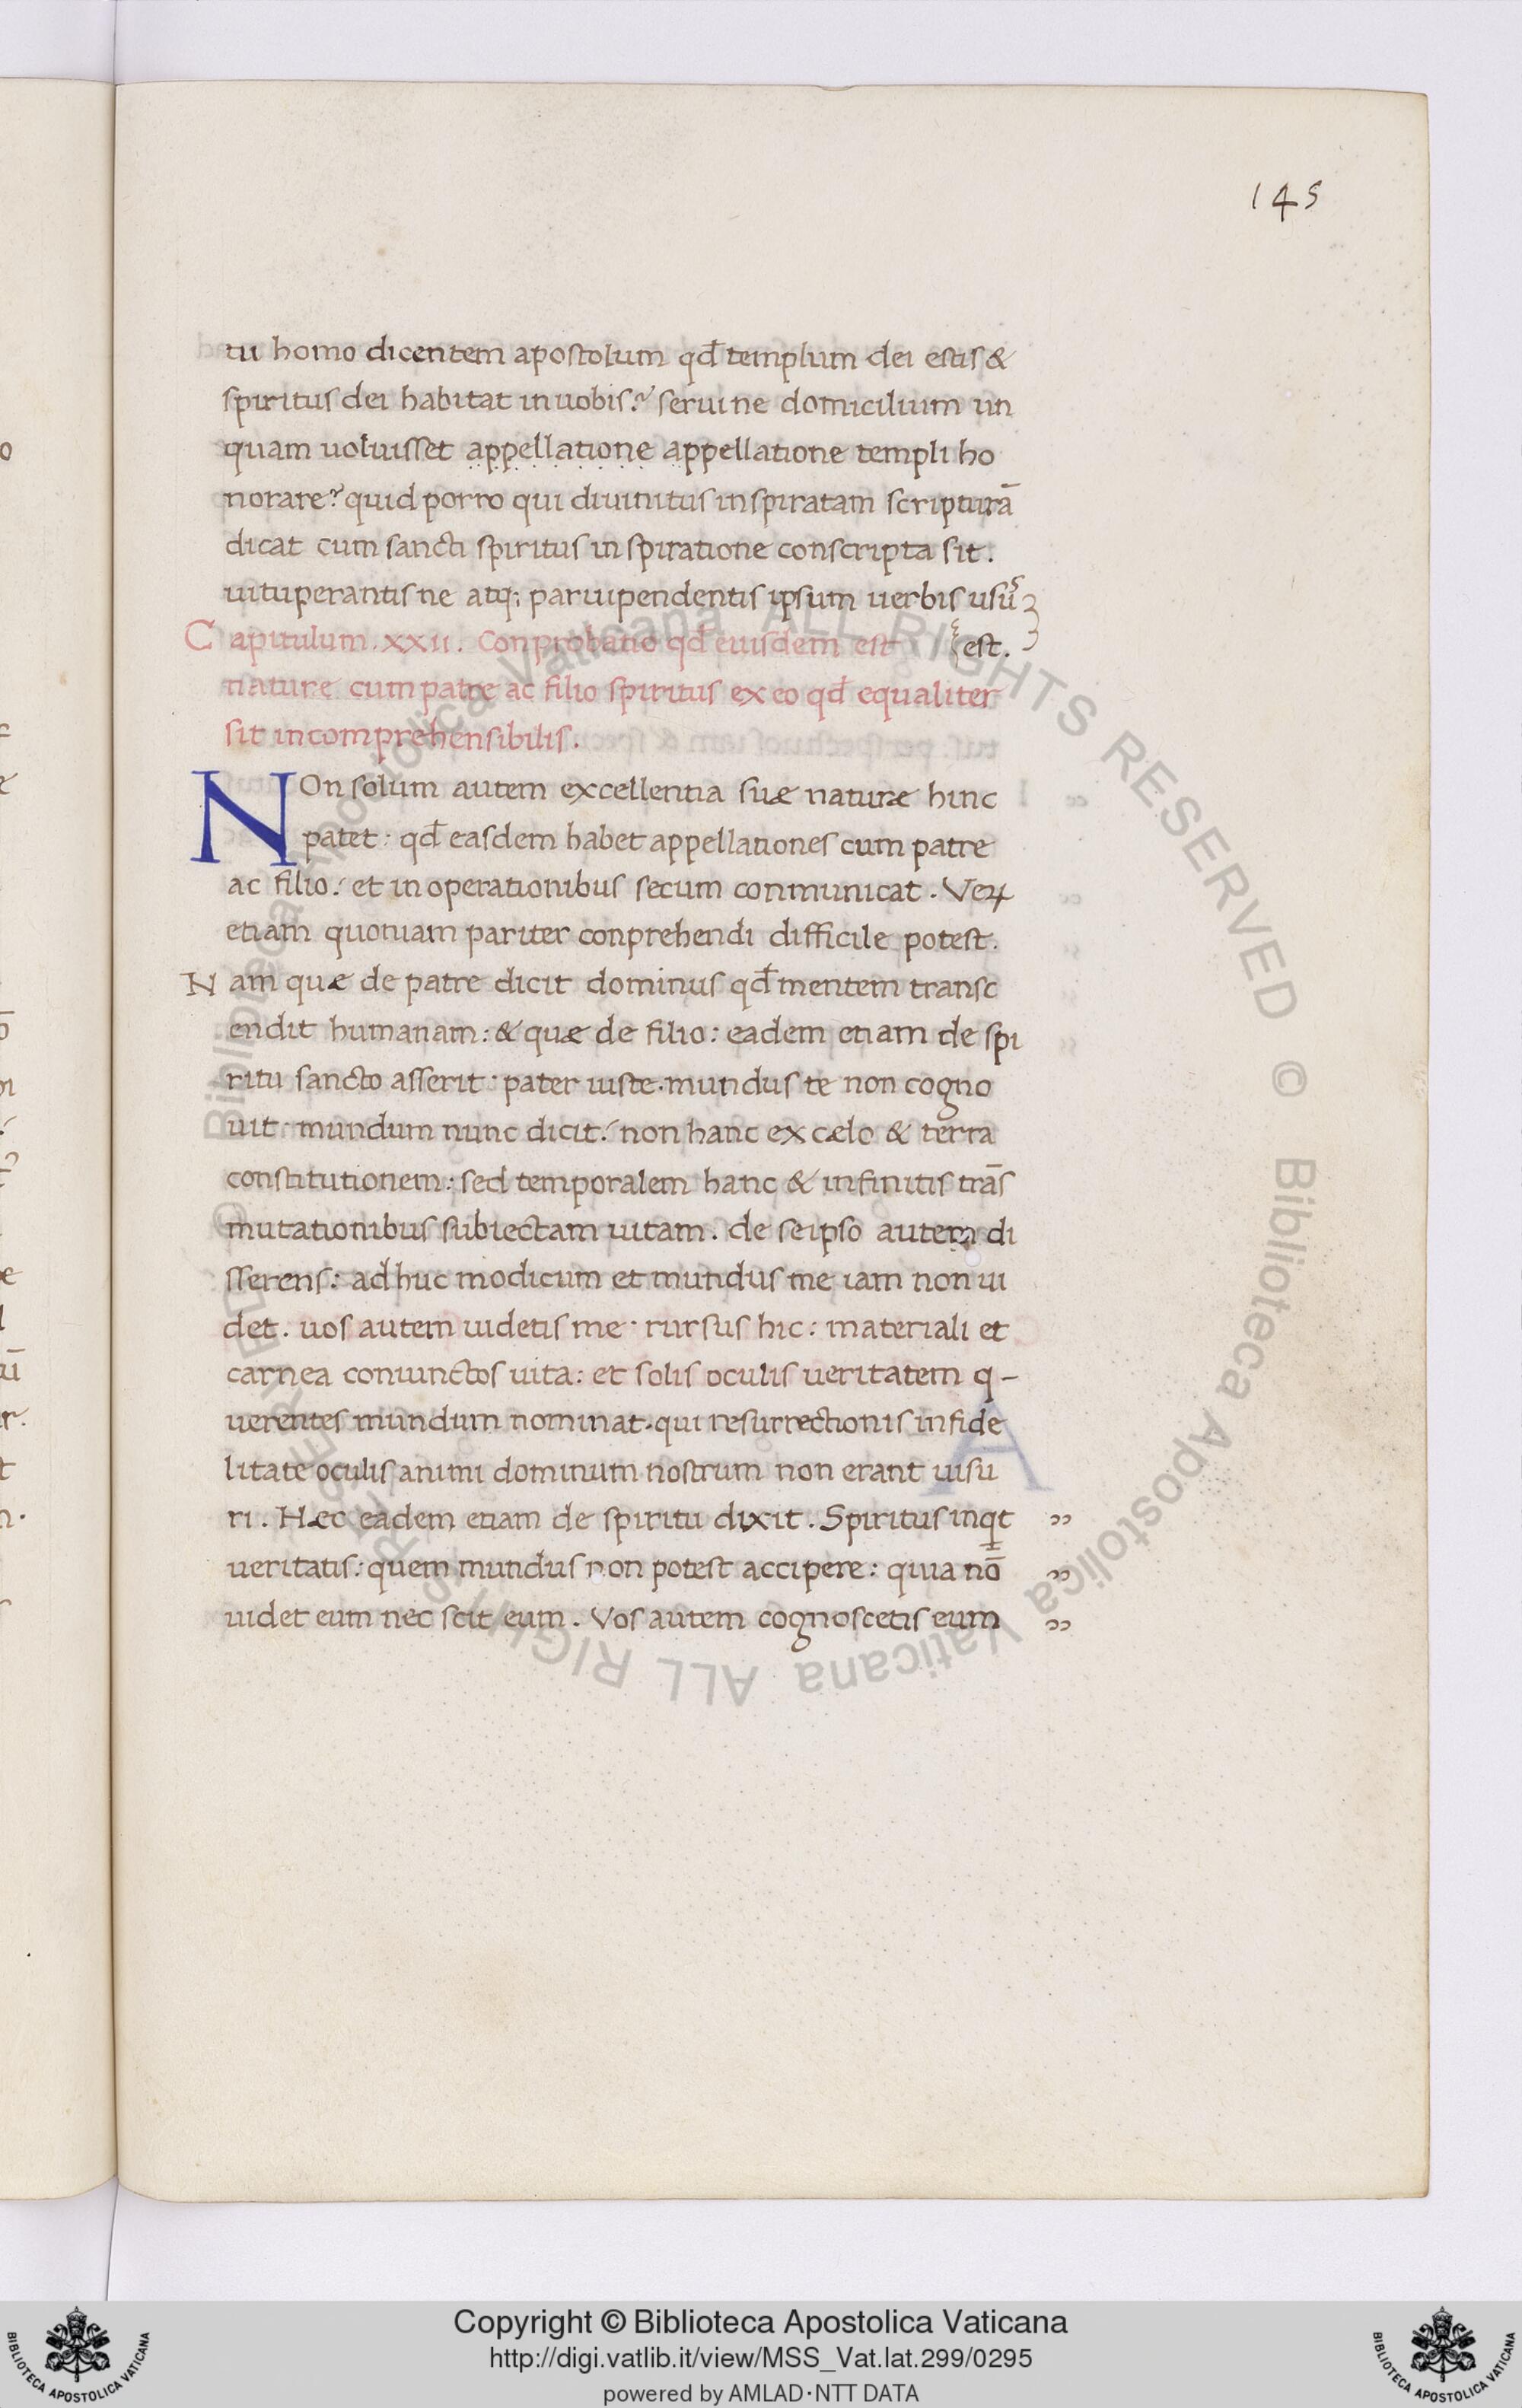 145
tu homo dicentem apostolum qd̄ templum dei estis &
spiritus dei habitat in uobis? seruine domicilium un
quam uoluisset appellatione appellatione templi ho
norare? quid porro qui diuinitus inspiratam scripturā
dicat cum sancti spiritus inspiratione conscripta sit.
uituperantis ne atq; paruipendentis ipsum uerbis usūs
est.
Capitulum .xxii. Conprobatio qd̄ eiusdem est
nature cum patre ac filio spiritus ex eo qd̄ equaliter
sit incomprehensibilis.
NOn solum autem excellentia suæ naturæ hinc
patet: qd̄ easdem habet appellationes cum patre
ac filio: et in operationibus secum conmunicat. Veꝝ
etiam quoniam pariter conprehendi difficile potest.
Nam quæ de patre dicit dominus qd̄ mentem transc
endit humanam: & quæ de filio: eadem etiam de spi
ritu sancto asserit: pater iuste. mundus te non cogno
uit. mundum nunc dicit: non hanc ex cælo & terra
constitutionem: sed temporalem hanc & infinitis trās
mutationibus subiectam uitam. de seipso autem di
sserens: adhuc modicum et mundus me iam non ui
det. uos autem uidetis me. rursus hic: materiali et
carnea coniunctos uita: et solis oculis ueritatem q-
uerentes mundum nominat. qui resurrectionis infide
litate oculis animi dominum nostrum non erant uisu
ri. Hæc eadem etiam de spiritu dixit. Spiritus inqt ”
ueritatis: quem mundus non potest accipere: quia nō ”
uidet eum nec scit eum. Vos autem cognoscetis eum ”
Copyright © Biblioteca Apostolica Vaticana
http://digi.vatlib.it/view/MSS_Vat.lat.299/0295
powered by AMLAD·NTT DATA